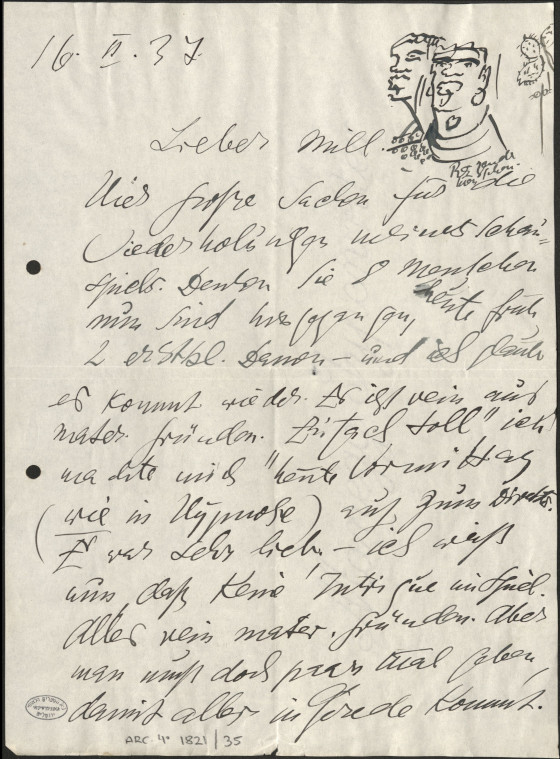 16. II. 37.
Lieber Mill.
Hier große Sachen für die
Wiederholungen meines Schau=
spiels. Denken Sie 8 Menschen
nun sind hergegangen, heute früh
2 erstkl. Damen – und ich glaube
es kommt wieder. Es ist rein aus
mater. Gründen. Einfach toll" ich
machte mich "heute Vormittag
(wie in Hypnose) auf zum Direkt.
Er war sehr lieb, – ich weiß
nun, daß keine Intrigue im Spiel.
Alles rein mater. Gründen. Aber
man muß doch paar mal geben,
damit alles in Gerede kommt.
ARC. 4° 1821 / 35